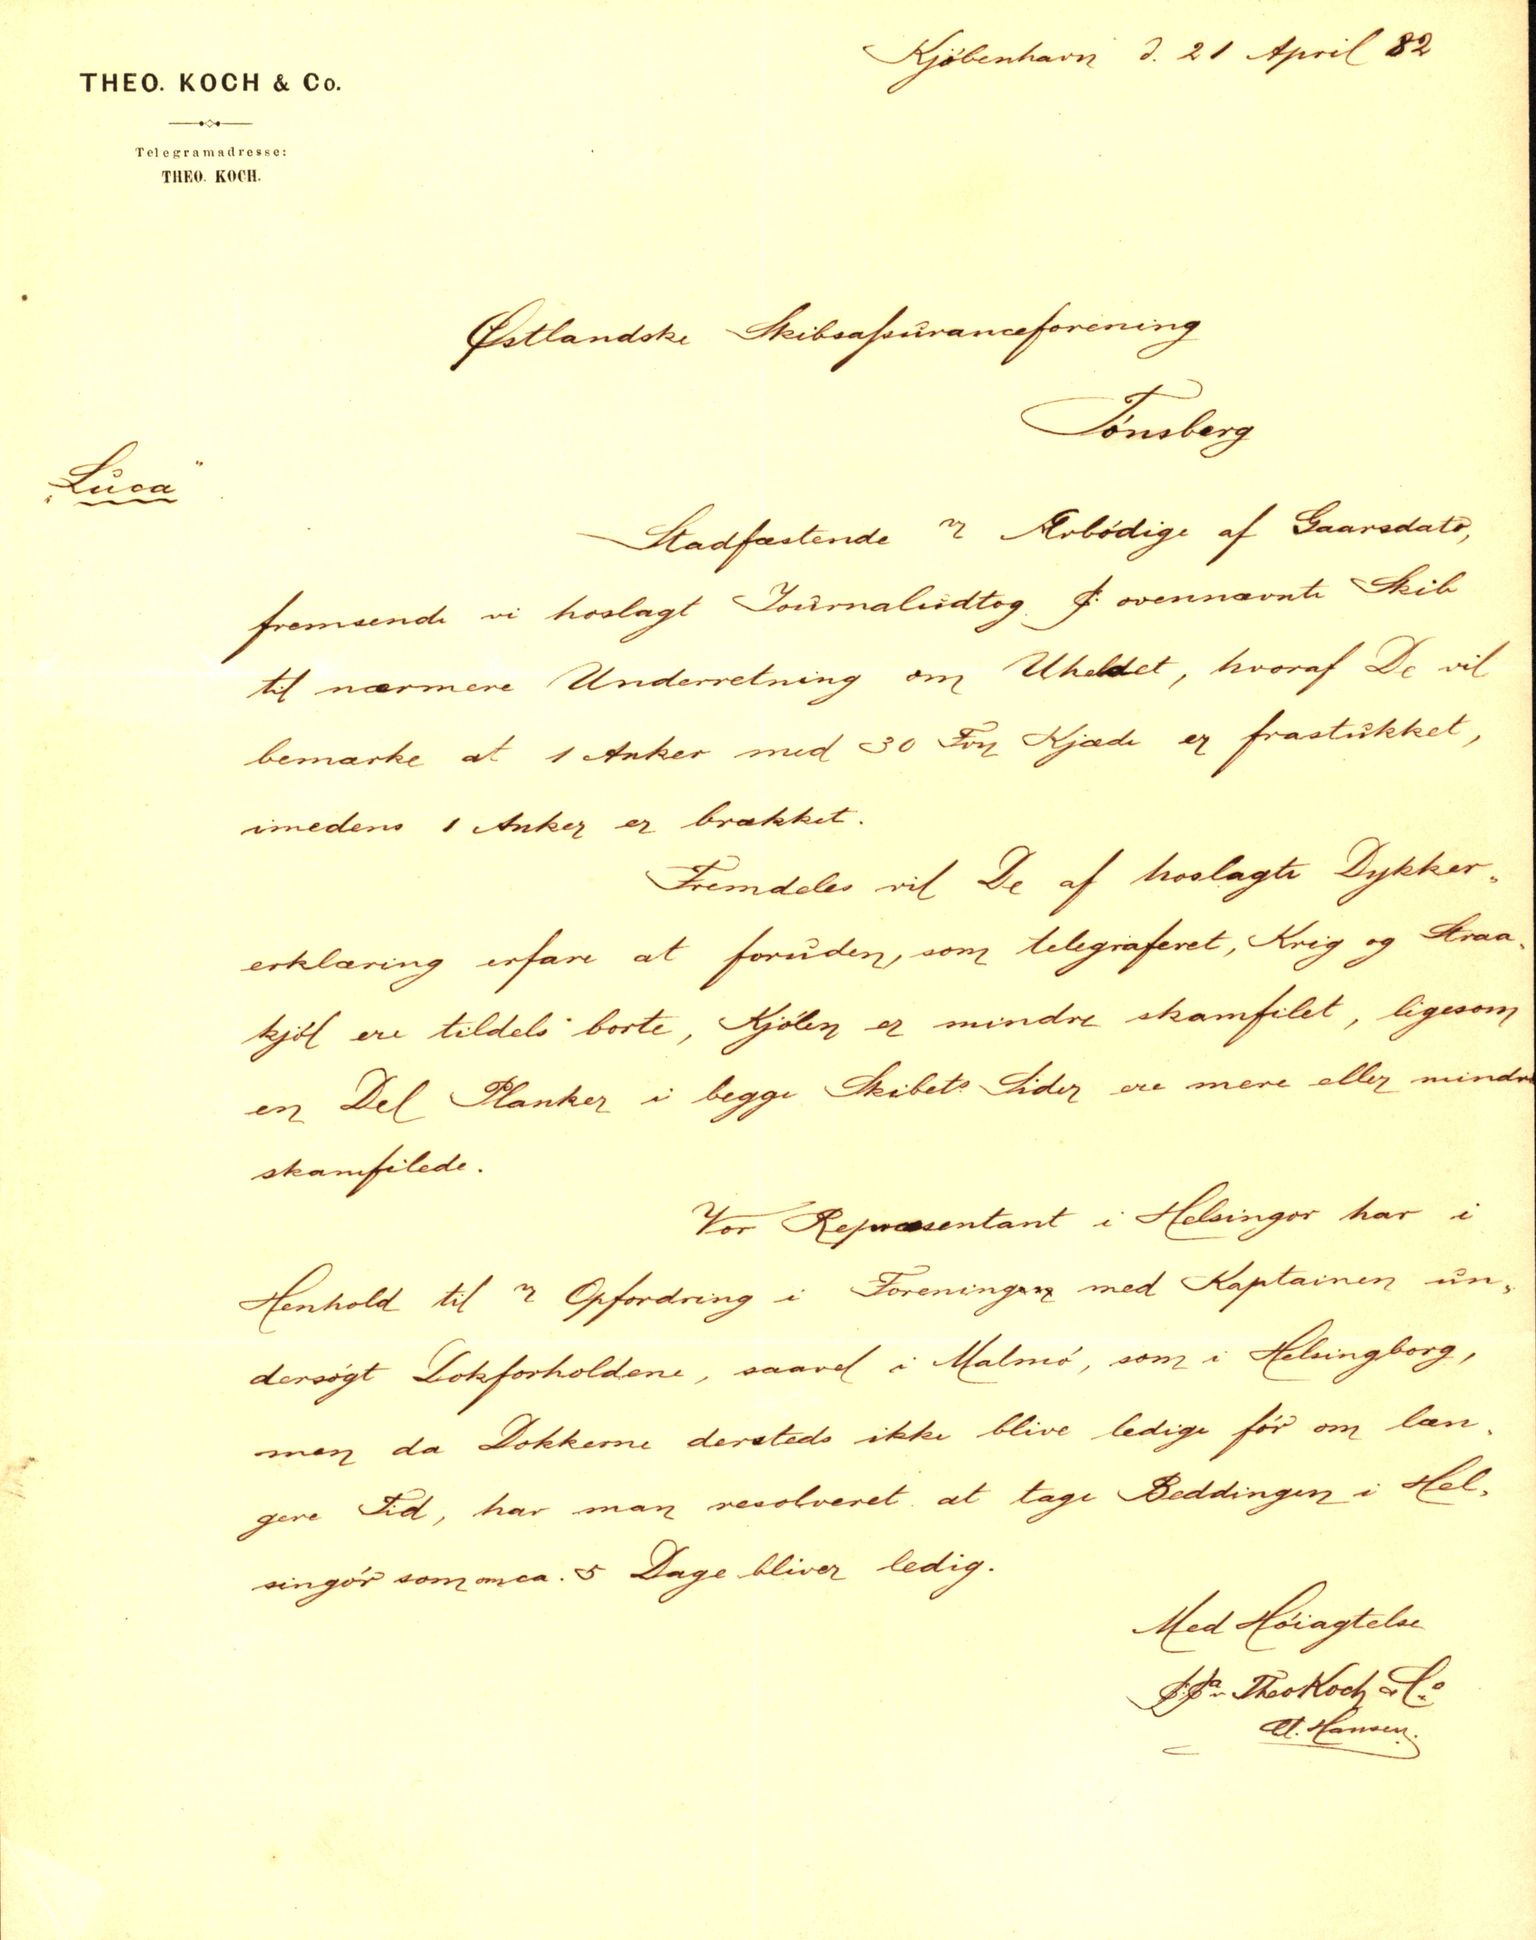 Kjöbenhavn d. 21 April 82
THEO. KOCH & Co.
Telegramadresse:
THEO. KOCH.
Østlandske Skibsassuranceforening
Tönsberg
„Luca"
Stadfæstende Ærbödige af Gaarsdato,
fremsende vi hoslagt Journaludtog p. ovennævnte Skib
til nærmere Underretning om Uheldet, hvoraf De vil
bemærke at 1 Anker med 30 Fvn Kjæde er frastukket,
imedens 1 Anker er brækket.
Fremdeles vil De af hoslagte Dykker-
erklæring erfare at foruden, som telegraferet, Krig og Straa-
kjöl ere tildels borte, Kjölen er mindre skamfilet, ligesom
en Del Planker i begge Skibets Sider ere mere eller mindre
skamfilede.
Vor Repræsentant i Helsingor har i
Henhold til Opfordring i Foreningen med Kaptainen un-
dersögt Dokforholdene, saavel i Malmö, som i Helsingborg,
men da Dokkerne dersteds ikke blive ledige för om læn-
gere Tid, har man resolveret at tage Beddingen i Hel-
singör som om ca. 5 Dage bliver ledig.
Med Höiagtelse
p.pa. Theo Koch & Co
Hansen.